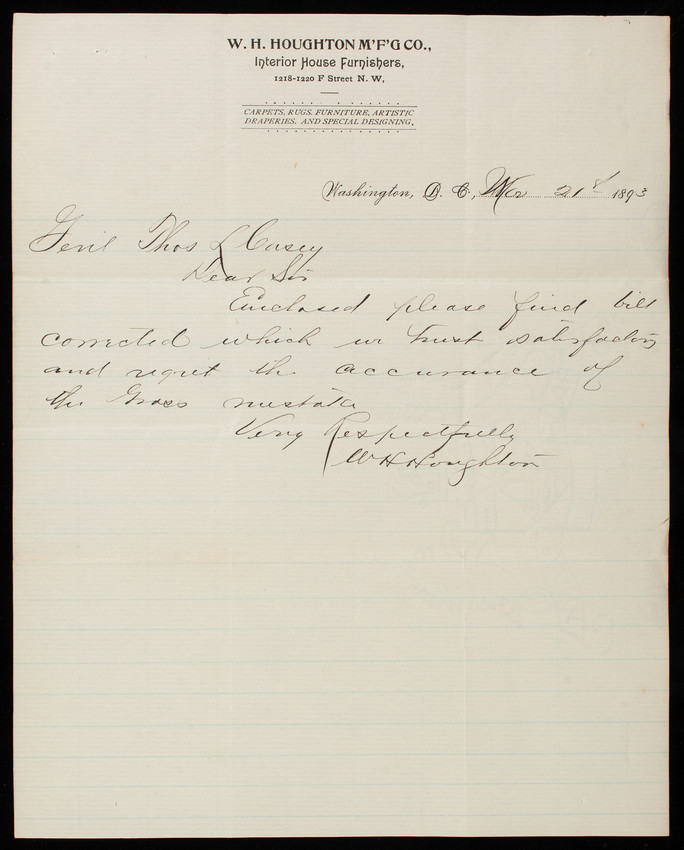 W. H. HOUGHTON M'F'G CO.,
Interior House Furnishers,
1218-1220 F Street N. W.
CARPETS, RUGS, FURNITURE, ARTISTIC
DRAPERIES, AND SPECIAL DESIGNING.
Washington, D. C., Mar 21st 1893
Genl Thos L Casey
Dear Sir
Enclosed please find bill
corrected which we trust satisfactory
and regret the accurance of
the Gross mistake
Very Respectfully
W H Houghton